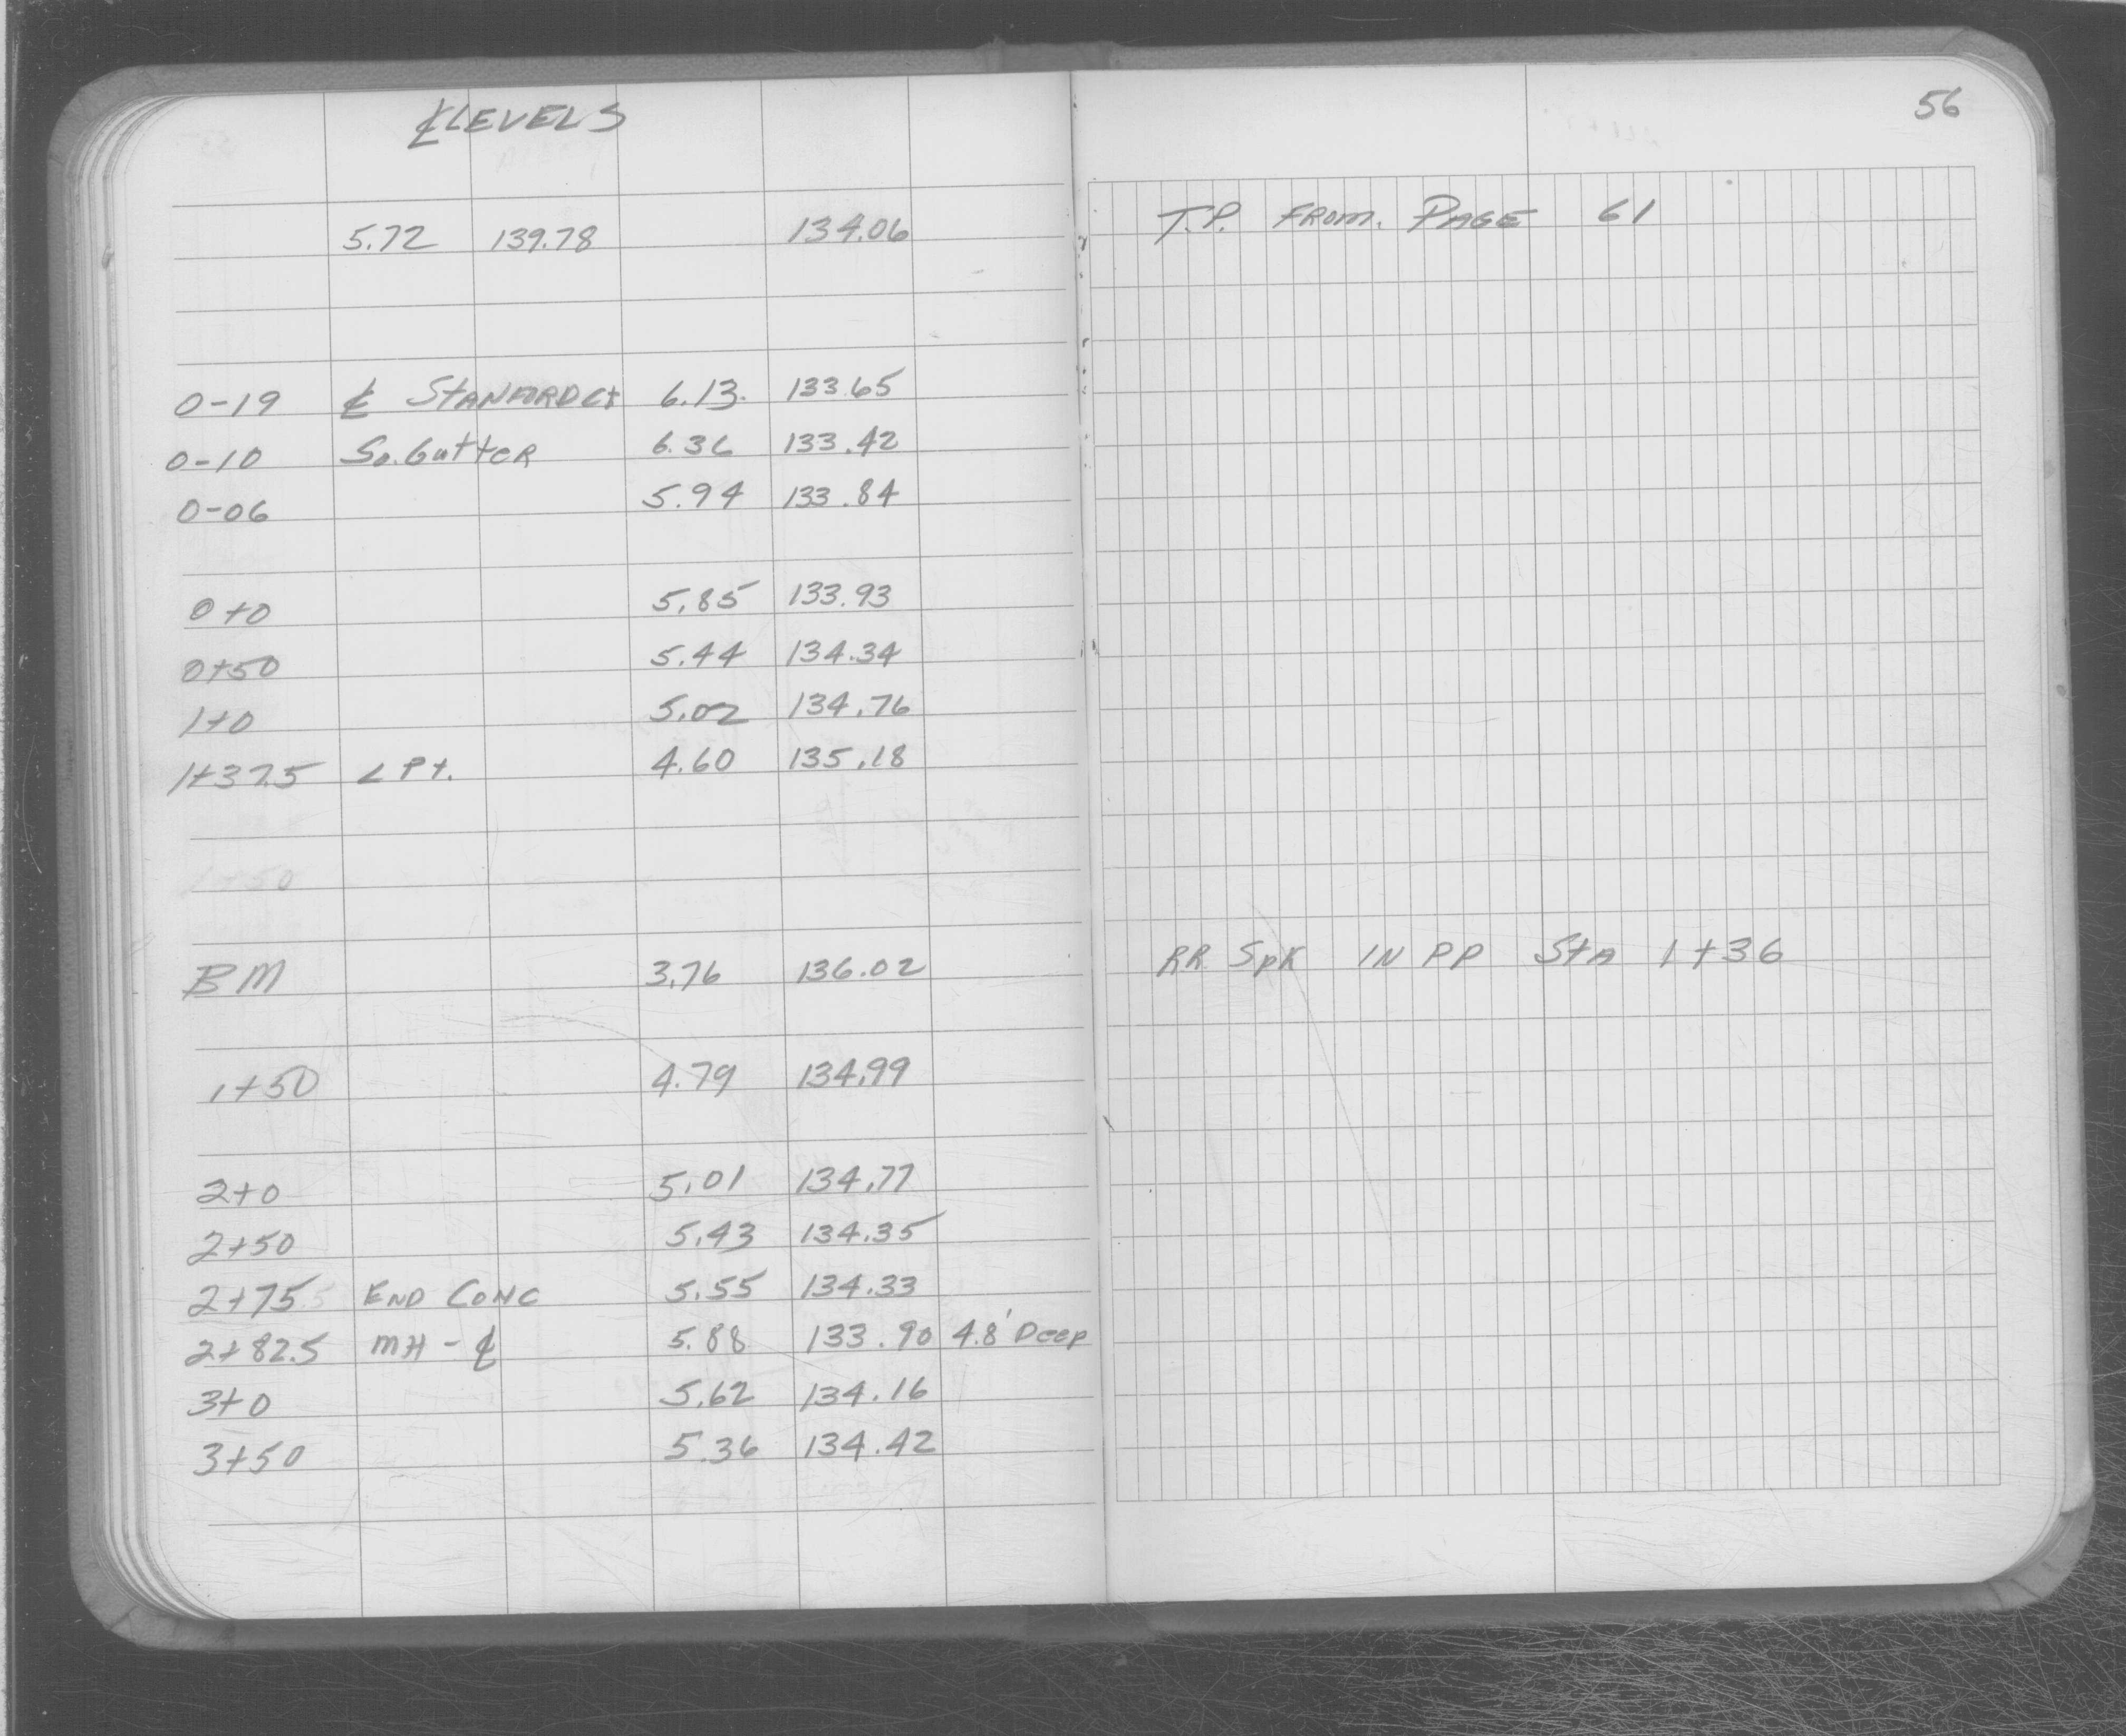 ℄ LEVELS
56
5.72 139.78 134.06 T.P. FROM. PAGE 61
0-19 ℄ STANFORD Ct 6.13. 133.65
0-10 So. Gutter 6.36 133.42
0-06 5.94 133.84
0+0 5.85 133.93
0+50 5.44 134.34
1+0 5.02 134.76
1+37.5 ∠ Pt. 4.60 135.18
1+50
BM 3.76 136.02 RR SpK IN PP StA 1+36
1+50 4.79 134.99
2+0 5.01 134.77
2+50 5.43 134.35
2+75.5 END CONC 5.55 134.33
2+82.5 MH - ℄ 5.88 133.90 4.8' Deep
3+0 5.62 134.16
3+50 5.36 134.42